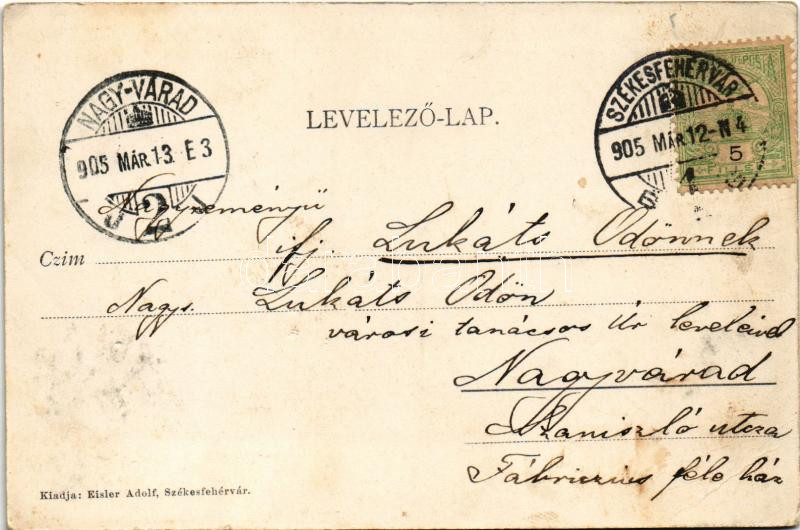 NAGY-VÁRAD
905 MÁR.13. E3
2
LEVELEZŐ-LAP.
SZÉKESFEHÉRVÁR
905 MÁR.12-N4
1
5
Nagyreményü
ifj. Lukáts Ödönnek
Czim
Nagys. Lukáts Ödön
városi tanácsos Úr leveleivel
Nagyvárad
Szaniszló utcza
Fábriczius féle ház
Kiadja: Eisler Adolf, Székesfehérvár.